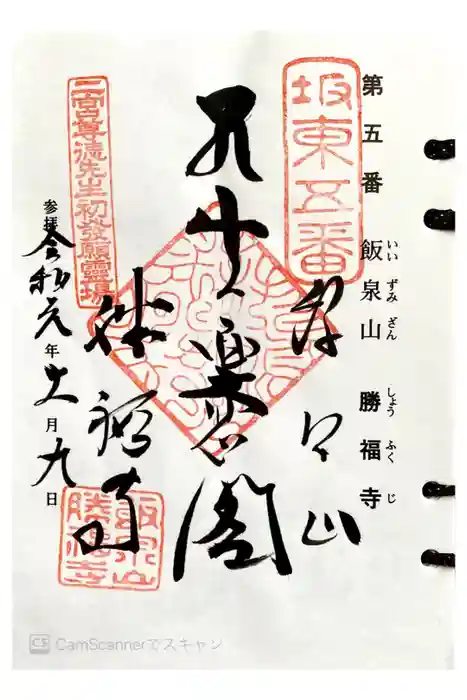 第五番 飯泉山 勝福寺
いいずみざん しょうふくじ
坂東五番
飯泉山
勝福寺
二宮尊徳先生初發願霊場
参拝
令和元年十一月九日
飯泉山
勝福寺
CS CamScannerでスキャン